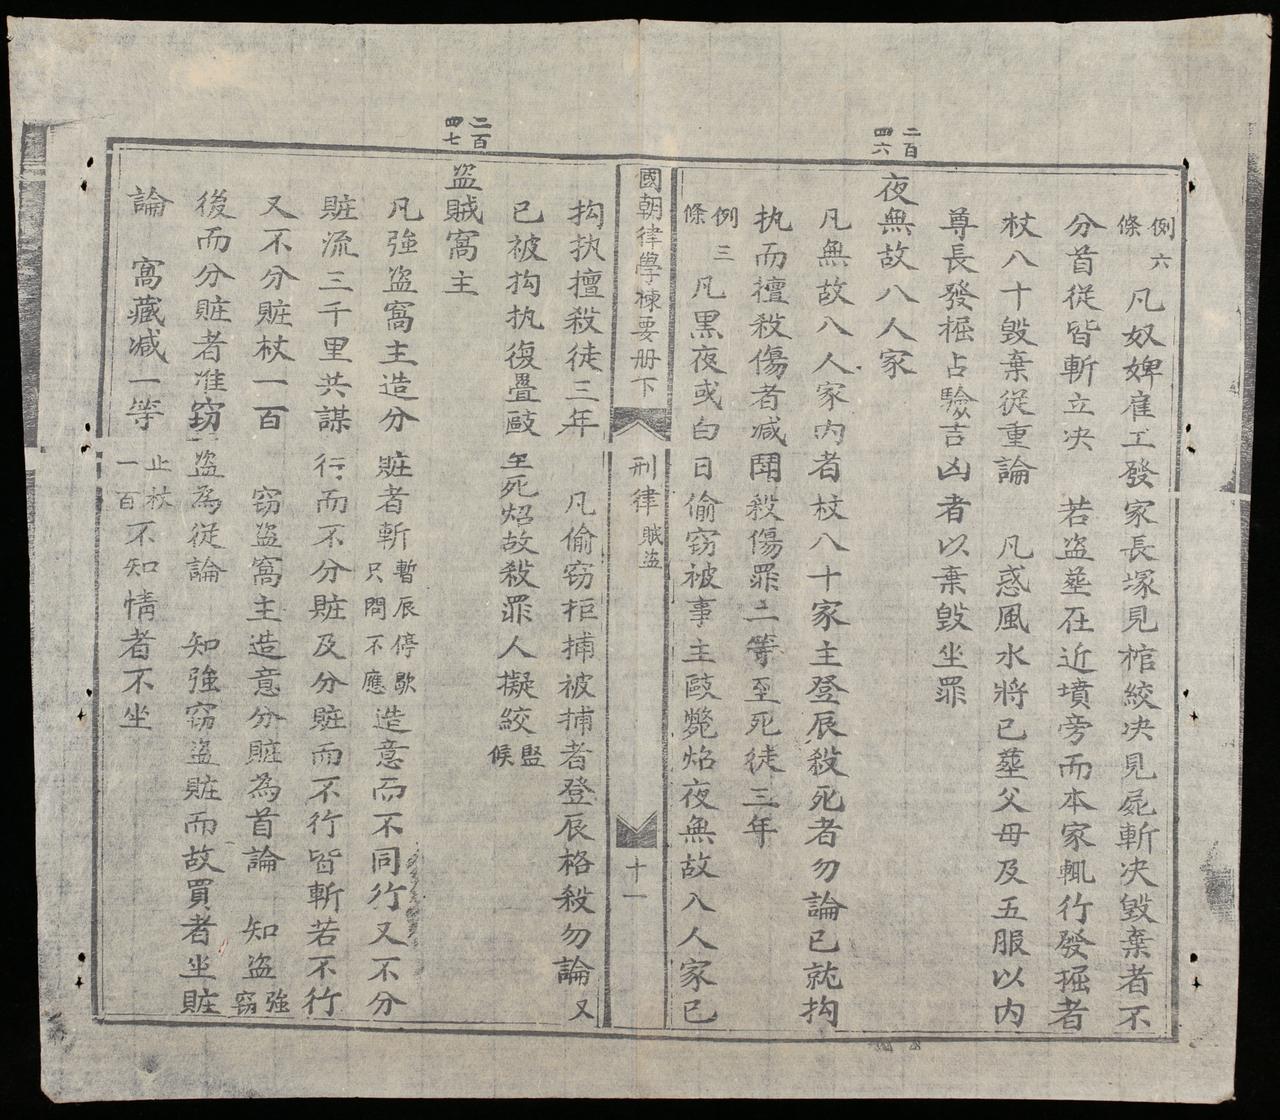 二百四六
例六條凡奴婢雇工發家長塚見棺絞决見屍斬决毀棄者不
分首從皆斬立决 若盗塟在近墳旁而本家輒行發掘者
杖八十毀棄從重論 凡惑風水將已塟父母及五服以内
尊長發掘占驗吉凶者以棄毀坐罪
夜無故入人家
凡無故入人家内者杖八十家主登辰殺死者勿論已就拘
执而擅殺傷者减鬪殺傷罪二等至死徒三年
例三條凡黒夜或白日偷窃被事主毆斃炤夜無故入人家已
國朝律學揀要册下 刑律 賊盗 十一
拘执擅殺徒三年 凡偷窃拒捕被捕者登辰格殺勿論又
已被拘执復疊毆至死炤故殺罪人擬絞監候
二百四七
盗賊窩主
凡強盗窩主造分賍者斬暫辰停歇只問不應造意而不同行又不分
賍流三千里共謀行而不分賍及分賍而不行皆斬若不行
又不分賍杖一百 窃盗窩主造意分賍為首論 知盗強窃
後而分賍者准窃盗為從論 知強窃盗賍而故買者坐賍
論 窩藏减一等止杖一百不知情者不坐